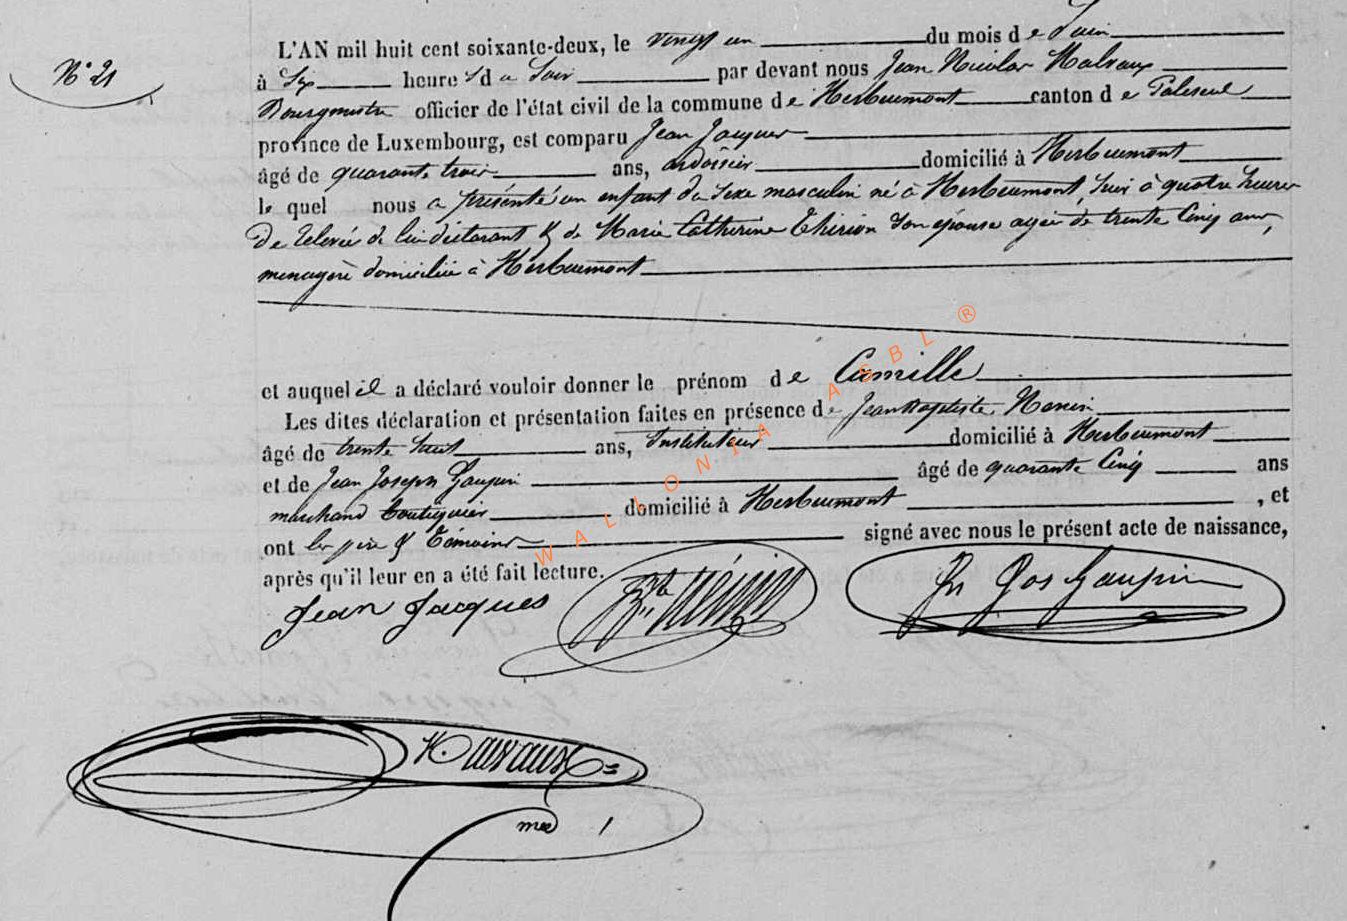 N° 21
L'AN mil huit cent soixante-deux, le vingt un du mois de Juin
à Six heures du Soir par devant nous Jean Nicolas
Bourgmestre officier de l'état civil de la commune de Herbeumont canton de Paliseul
province de Luxembourg, est comparu Jean Jacques
âgé de quarante trois ans, ardoisier domicilié à Herbeumont
le quel nous a présenté un enfant du Sexe masculin né à Herbeumont, à quatre heures
de relevée de lui déclarant & de Marie Catherine Thirion Son épouse agée de trente Cinq ans,
menagère domiciliée à Herbeumont
et auquel il a déclaré vouloir donner le prénom de Camille
Les dites déclaration et présentation faites en présence de Jean Baptiste Nenin
âgé de trente huit ans, Instituteur domicilié à Herbeumont
et de Jean Joseph Gaupin âgé de quarante Cinq ans
marchand boutiquier domicilié à Herbeumont , et
ont les père & témoins signé avec nous le présent acte de naissance,
après qu'il leur en a été fait lecture.
Jean Jacques Jn Jos Gaupin
WALLONIA ASBL ®